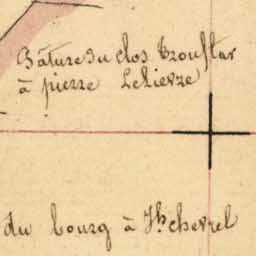 Pâture du clos Trouflar
à pierre Lelievre
du bourg à Jh chevrel